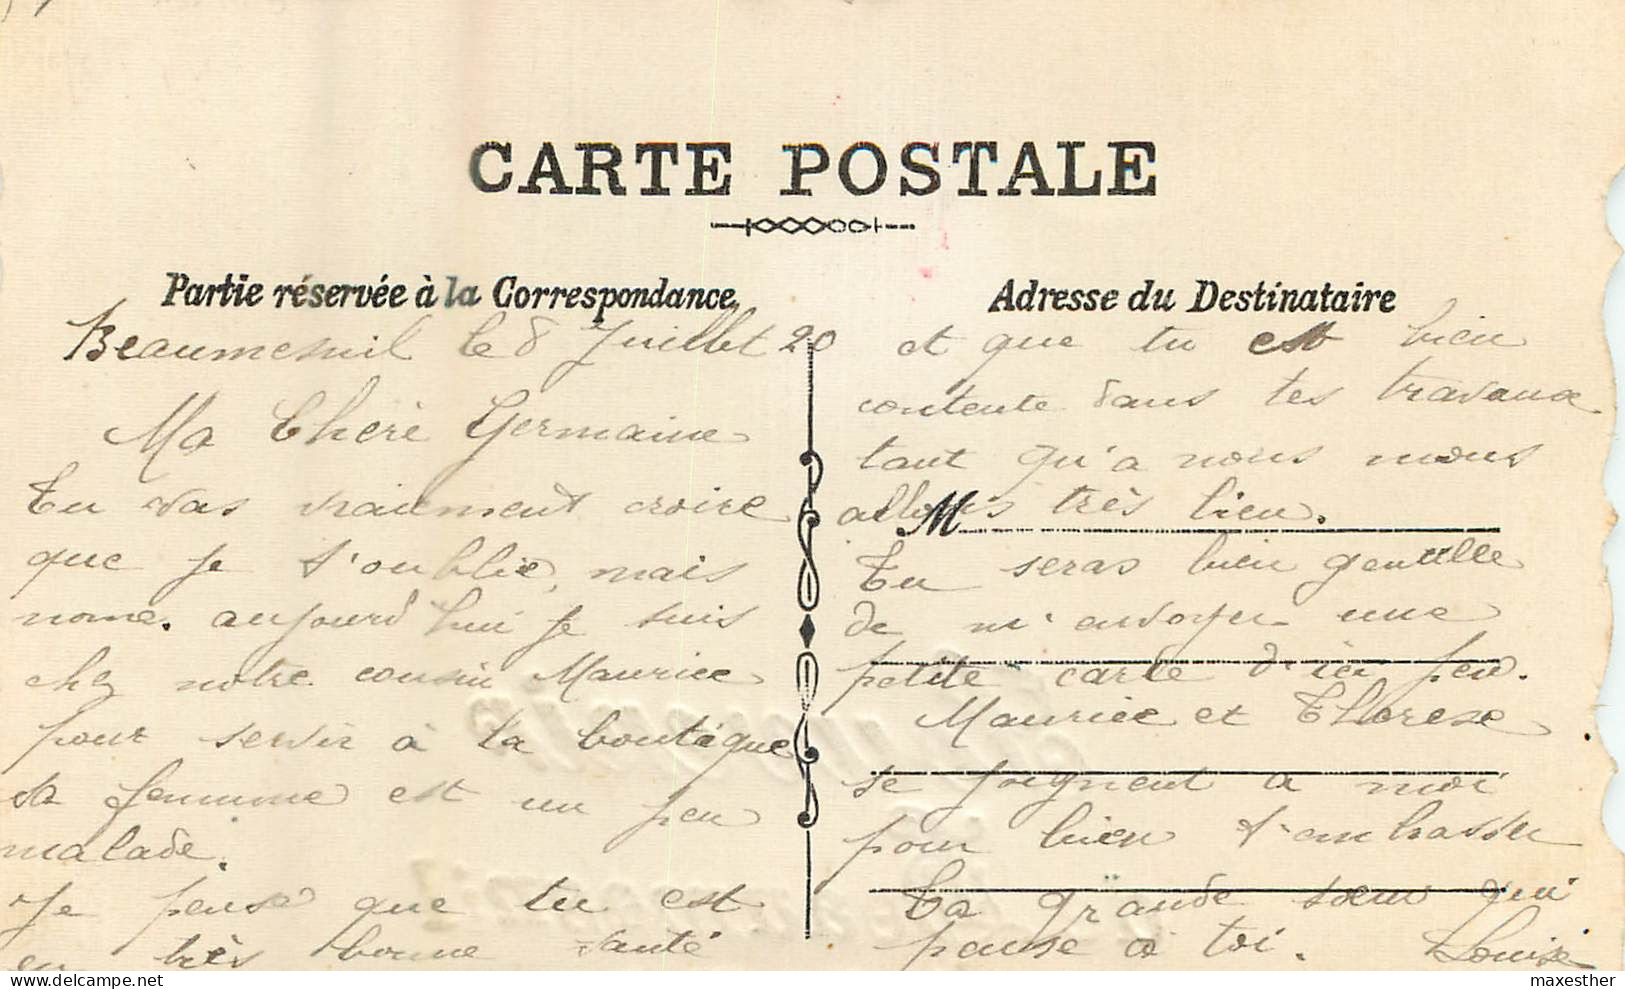 CARTE POSTALE
Partie réservée à la Correspondance
Beaumesnil le 8 Juillet 20
Ma Chère Germaine
Tu vas vraiment croire
que je t'oublie, mais
nome. aujourd'hui je suis
chez notre cousin Maurice
pour servir à la boutique
sa femme est un peu
malade.
Je pense que tu est
en très bonne santé
Adresse du Destinataire
et que tu est bien
contente dans tes travaux
tant qu'a nous nous
allons très bien.
M
Tu seras bien gentille
de m'envoyer une
petite carte d'ici peu.
Maurice et Thérèse
se joignent a moi
pour bien t'embrasser
Ta grande soeur qui
pense a toi. Louise
maxesther